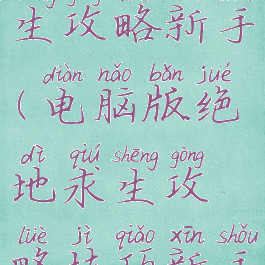 生攻略新手
diàn nǎo bǎn jué
(电脑版绝
dì qiú shēng gōng
地求生攻
lüè jì qiǎo xīn shǒu
略技巧新手